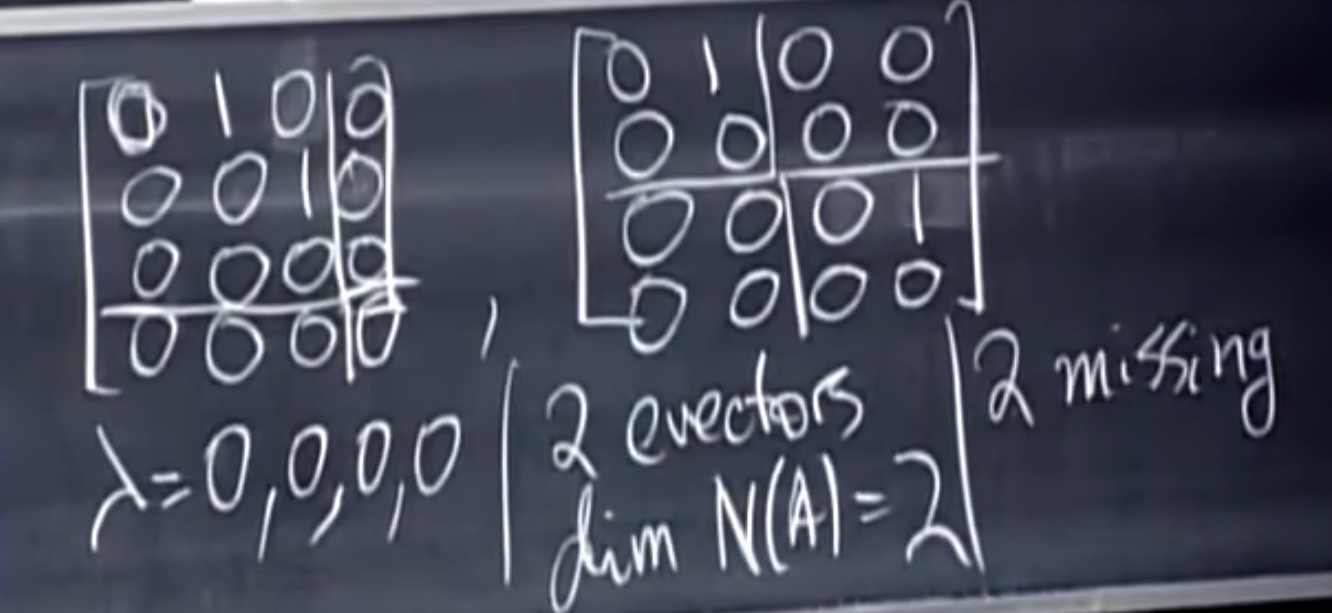 0 1 0 0
0 0 1 0
0 0 0 0
0 0 0 0
,
0 1 0 0
0 0 0 0
0 0 0 1
0 0 0 0
λ=0,0,0,0
2 evectors
dim N(A)=2
2 missing